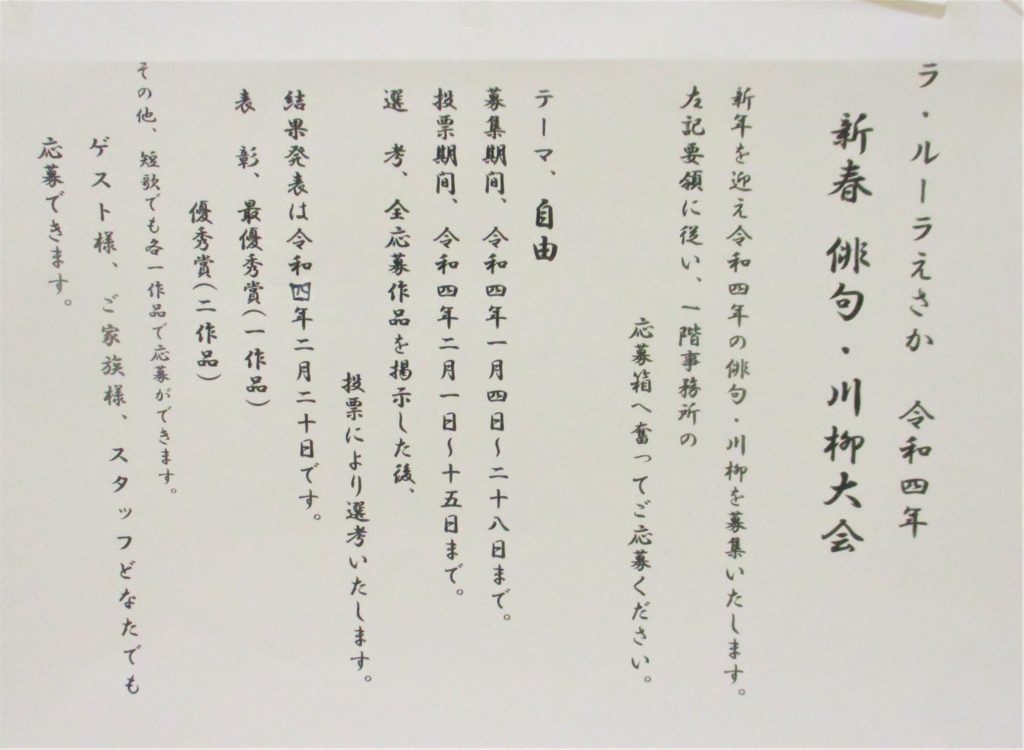 ラ・ルーラえさか　令和四年
新春　俳句・川柳大会
新年を迎え令和四年の俳句・川柳を募集いたします。
左記要領に従い、一階事務所の
応募箱へ奮ってご応募ください。
テーマ、自由
募集期间、令和四年一月四日～二十八日まで。
投票期间、令和四年二月一日～十五日まで。
選　考、全応募作品を掲示した後、
投票により選考いたします。
結果発表は令和四年二月二十日です。
表　彰、最優秀賞（一作品）
優秀賞（二作品）
その他、短歌でも各一作品で応募ができます。
ゲスト様、ご家族様、スタッフどなたでも
応募できます。